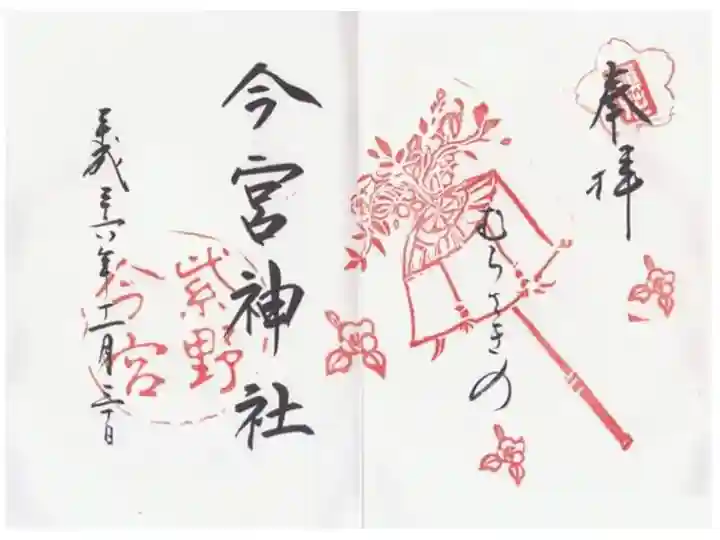 奉拝
むらさきの
今宮神社
紫野
今宮
平成二六年十一月